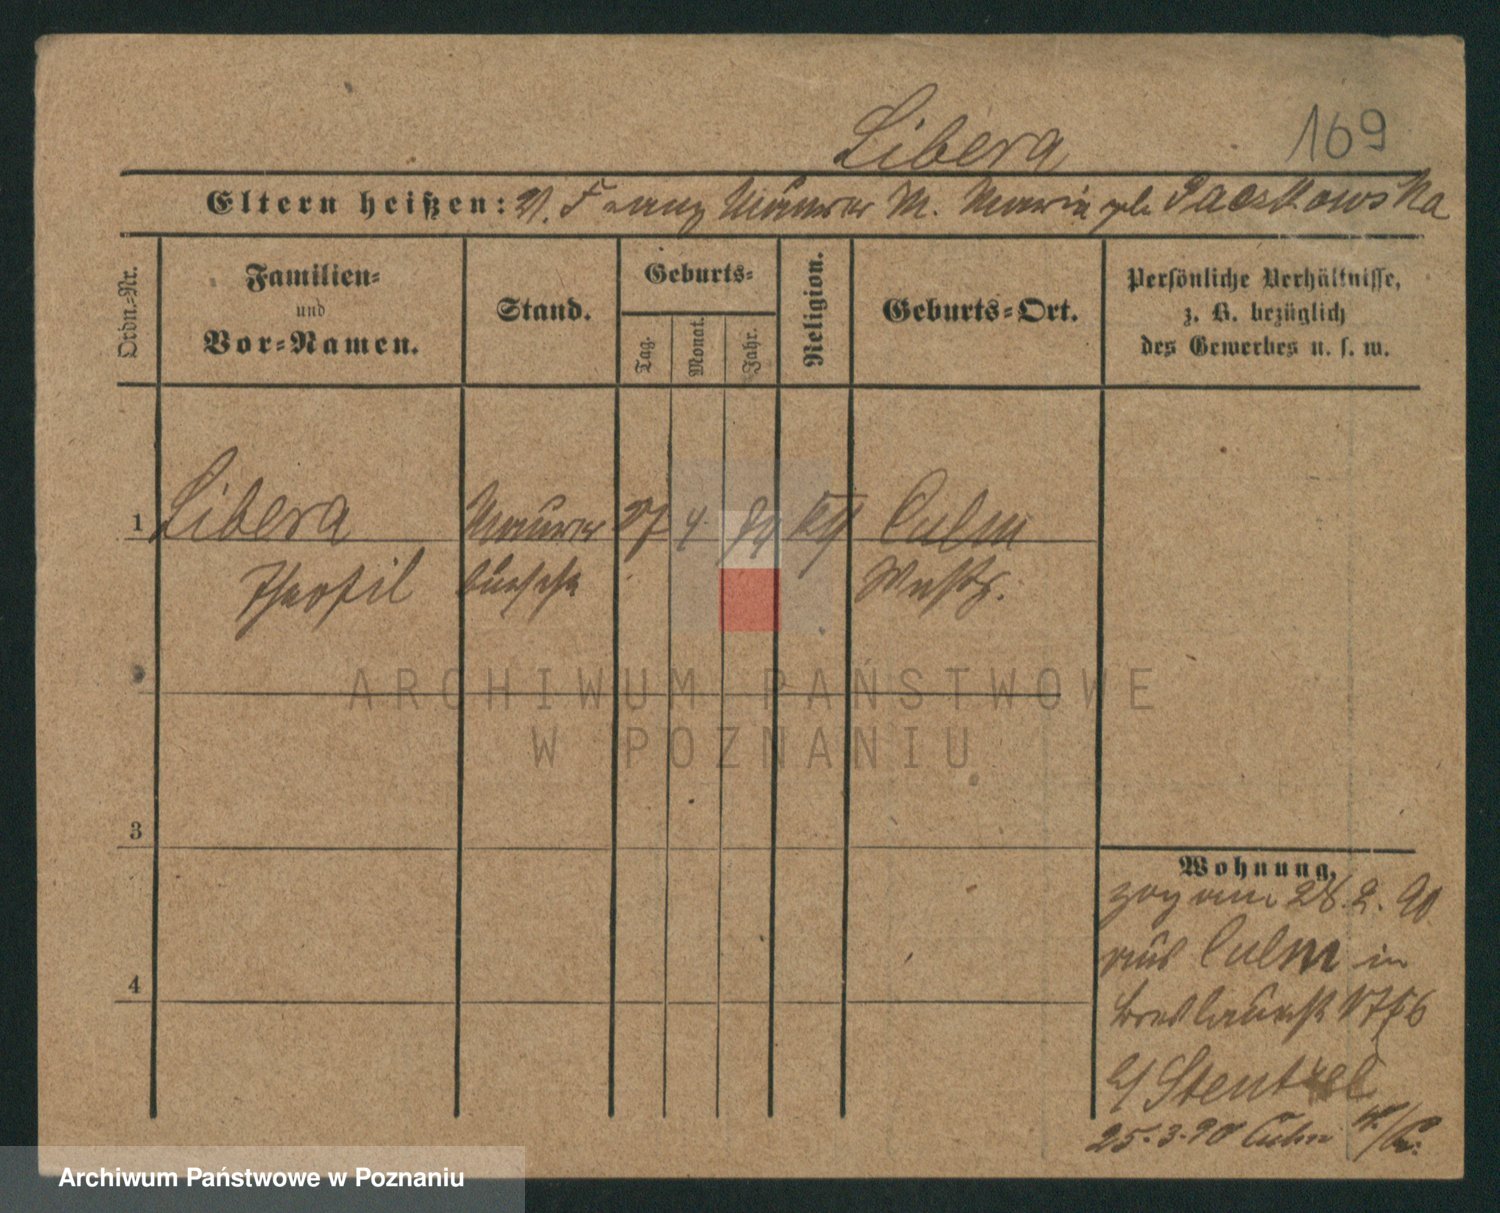 Libera
169
Eltern heißen: V. Franz Maurer M. Maria geb. Paczkowska
Ordn.-Nr.
Familien-
und
Vor-Namen.
Stand.
Geburts-
Tag.
Monat.
Jahr.
Religion.
Geburts-Ort.
Persönliche Verhältnisse,
z. B. bezüglich
des Gewerbes u. s. w.
1 Libera Maurer 27 4. kth Culm
Theofil bursche Westpr.
ARCHIWUM PAŃSTWOWE
W POZNANIU
3
4
Wohnung.
zog am 28.2.90
aus Culm in
Breslauerstr.
b/ Stentzel
25.3.90 Culm
Archiwum Państwowe w Poznaniu